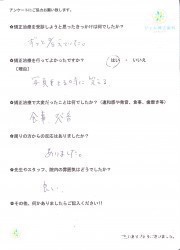 アンケートにご協力お願い致します。
★矯正治療を受診しようと思ったきっかけは何でしたか？
ずっと考えていた。
★矯正治療を行ってよかったですか？ はい ・ いいえ
(理由)
写真をとるの時に笑える
★矯正治療で大変だったことは何でしたか？（違和感や発音、食事、歯磨き等）
食事 発音
★周りの方からの反応はありましたか？
ありました。
★先生やスタッフ、院内の雰囲気はどうでしたか？
良い
★その他、何かありましたらご記入ください!!
ありがとうございました。